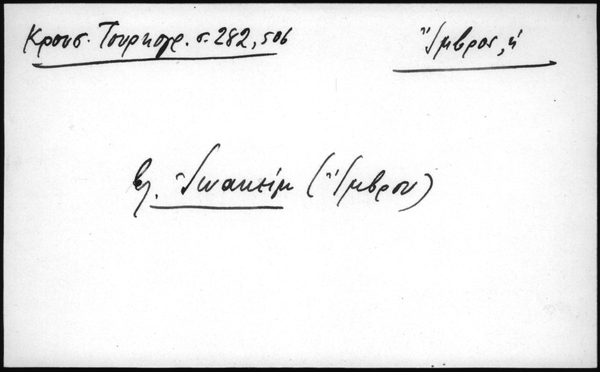 Κρουσ. Τουρκογρ. σ. 282, 506
Ἴμβρος, ἡ
βλ. Ἰωακείμ (Ἴμβρου)